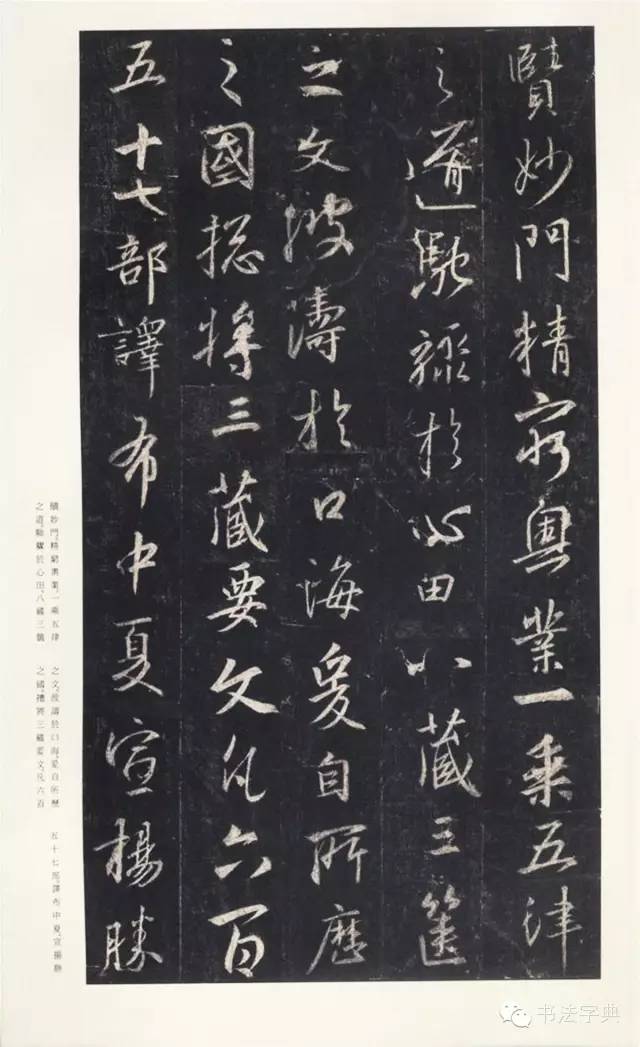 賾妙門精窮奧業一乘五律
之道馳驟於心田八藏三篋
之文波濤於口海爰自所歷
之國揔將三藏要文凡六百
五十七部譯布中夏宣揚勝
賾妙門精窮奧業一乘五律
之道馳驟於心田八藏三篋
之文波濤於口海爰自所歷
之國揔將三藏要文凡六百
五十七部譯布中夏宣揚勝
书法字典